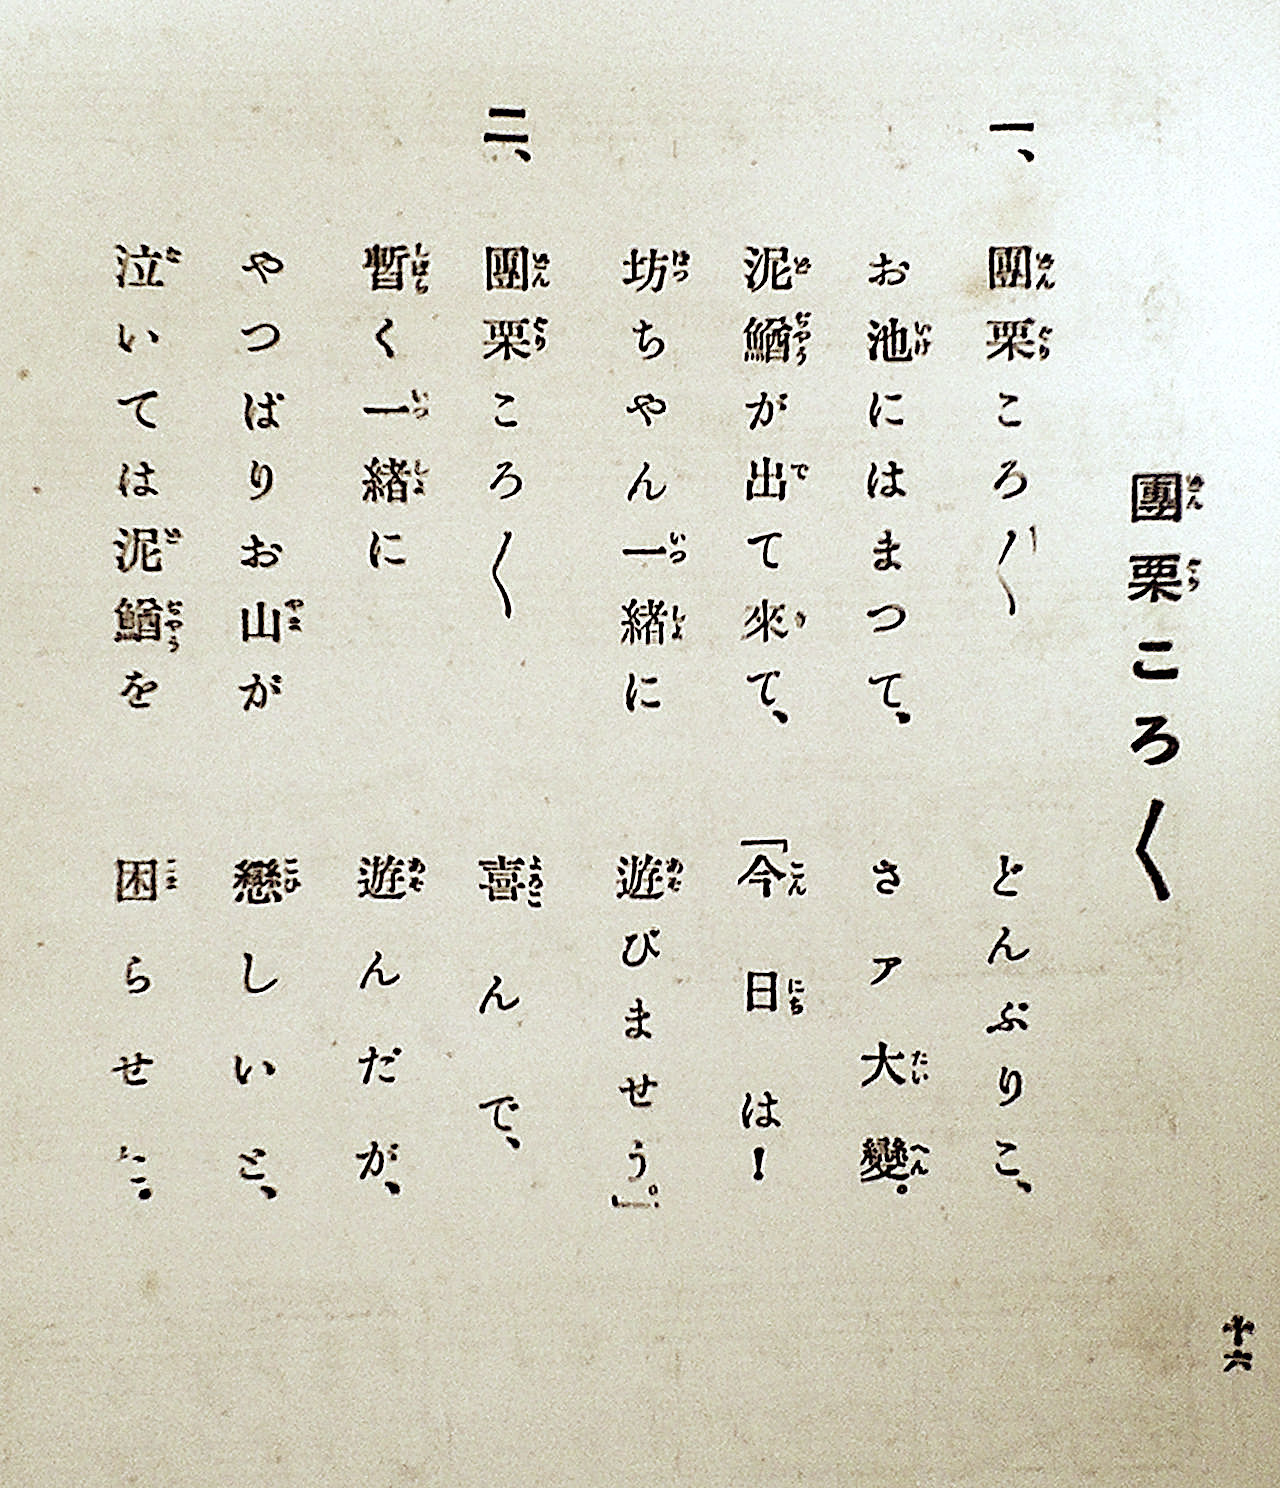 團栗ころ〱
一、團栗ころ〱 どんぶりこ、
お池にはまつて、 さァ大變。
泥鰌が出て來て、 「今日は!
坊ちやん一緒に 遊びませう。」
二、團栗ころ〱 喜んで、
暫く一緒に 遊んだが、
やつぱりお山が 戀しいと、
泣いては泥鰌を 困らせた。
十六